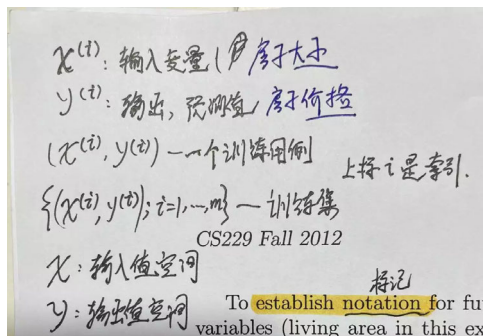 x⁽ⁱ⁾: 输入变量 ( 房子大小
y⁽ⁱ⁾: 输出, 预测值 房子价格
(x⁽ⁱ⁾, y⁽ⁱ⁾) — 一个训练用例
上标 i 是索引.
{(x⁽ⁱ⁾, y⁽ⁱ⁾); i=1,…,m} — 训练集
CS229 Fall 2012
X: 输入值空间
标记
Y: 输出值空间
To establish notation for fu
variables (living area in this ex